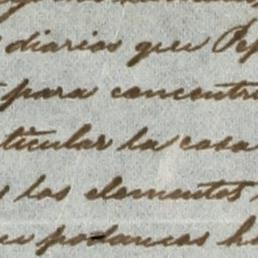 diarios que Pep
para concentr
ticular la casa
los elementos
podamos h